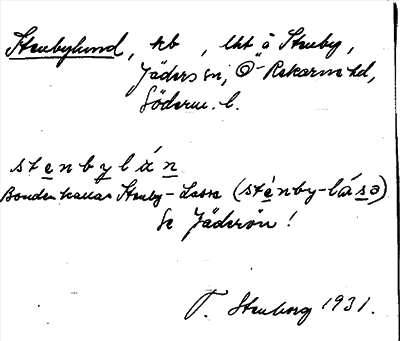 Stenbylund, tb, lht å Stenby,
Jäders sn, Ö-Rekarne hd,
Söderm. l.
stenbylán
Bonden kallas Stenby-Lasse (sténby-lásə)
Se Jäderön!
T. Stenborg 1931.